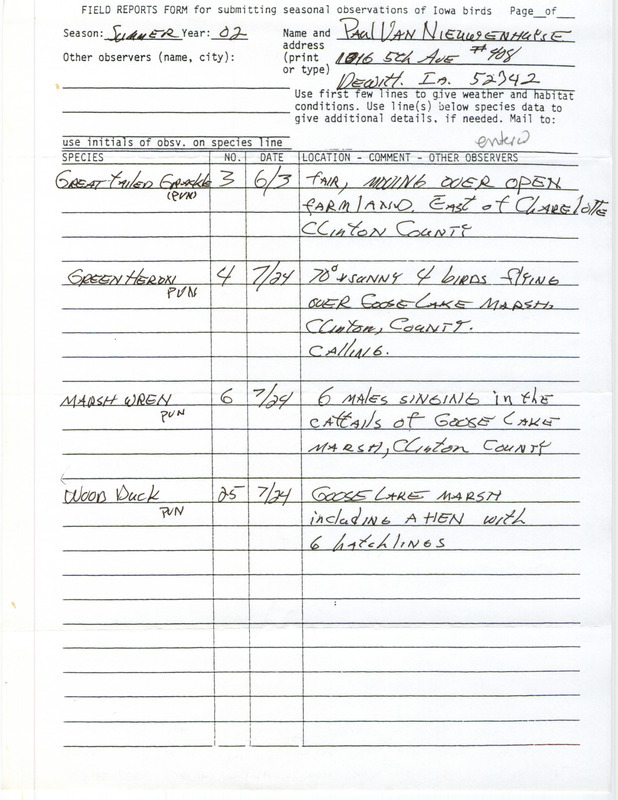 FIELD REPORTS FORM for submitting seasonal observations of Iowa birds Page__of__
Season: Summer Year: 02 Name and Paul Van Nieuwenhuyse
address 1016 5th Ave #408
Other observers (name, city): (print
or type) DeWitt. Ia. 52742
Use first few lines to give weather and habitat
conditions. Use line(s) below species data to
give additional details, if needed. Mail to:
entered
use initials of obsv. on species line
SPECIES NO. DATE LOCATION - COMMENT - OTHER OBSERVERS
Great tailed Grackle 3 6/3 fair, moving over open
(PVN) farmland. East of Charlotte
Clinton County
Green Heron 4 7/24 70° + sunny 4 birds flying
PVN over Goose Lake Marsh,
Clinton, County.
Calling.
Marsh Wren 6 7/24 6 males singing in the
PVN cattails of Goose Lake
Marsh, Clinton County
Wood Duck 25 7/24 Goose Lake Marsh
PVN including A Hen with
6 hatchlings